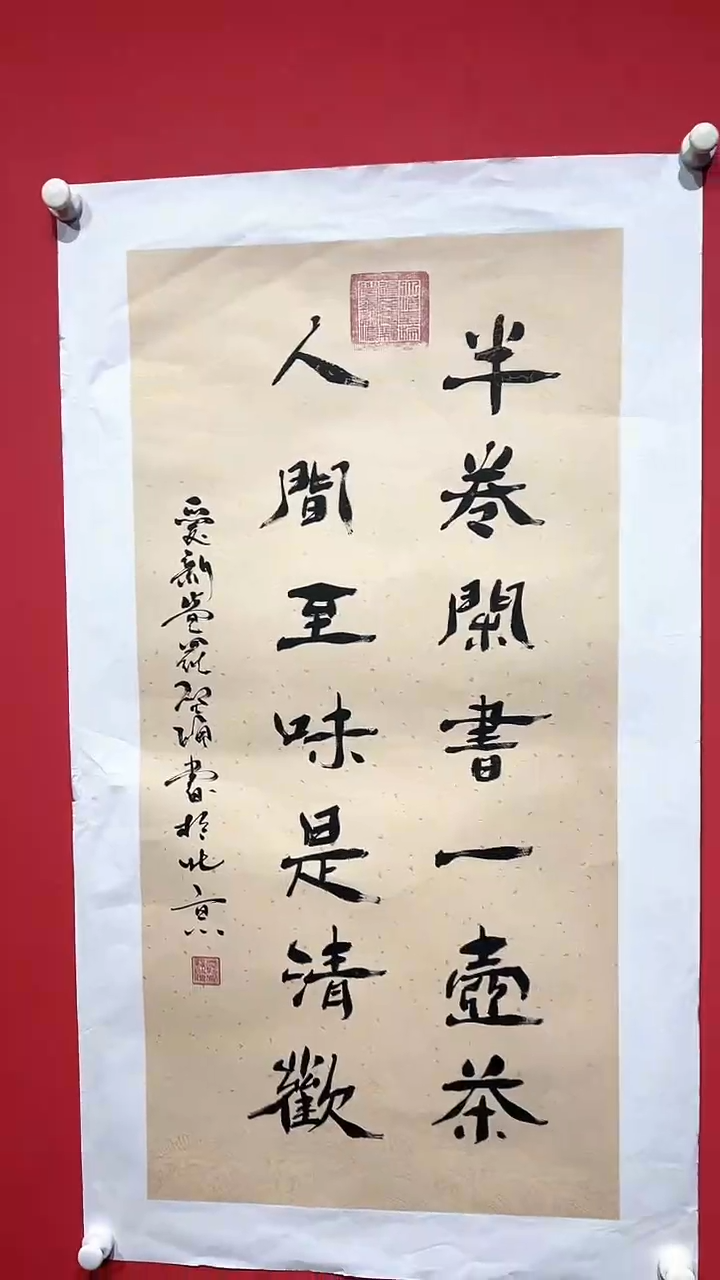 半卷閑書一壺茶
人間至味是清歡
愛新覺羅 書於北京